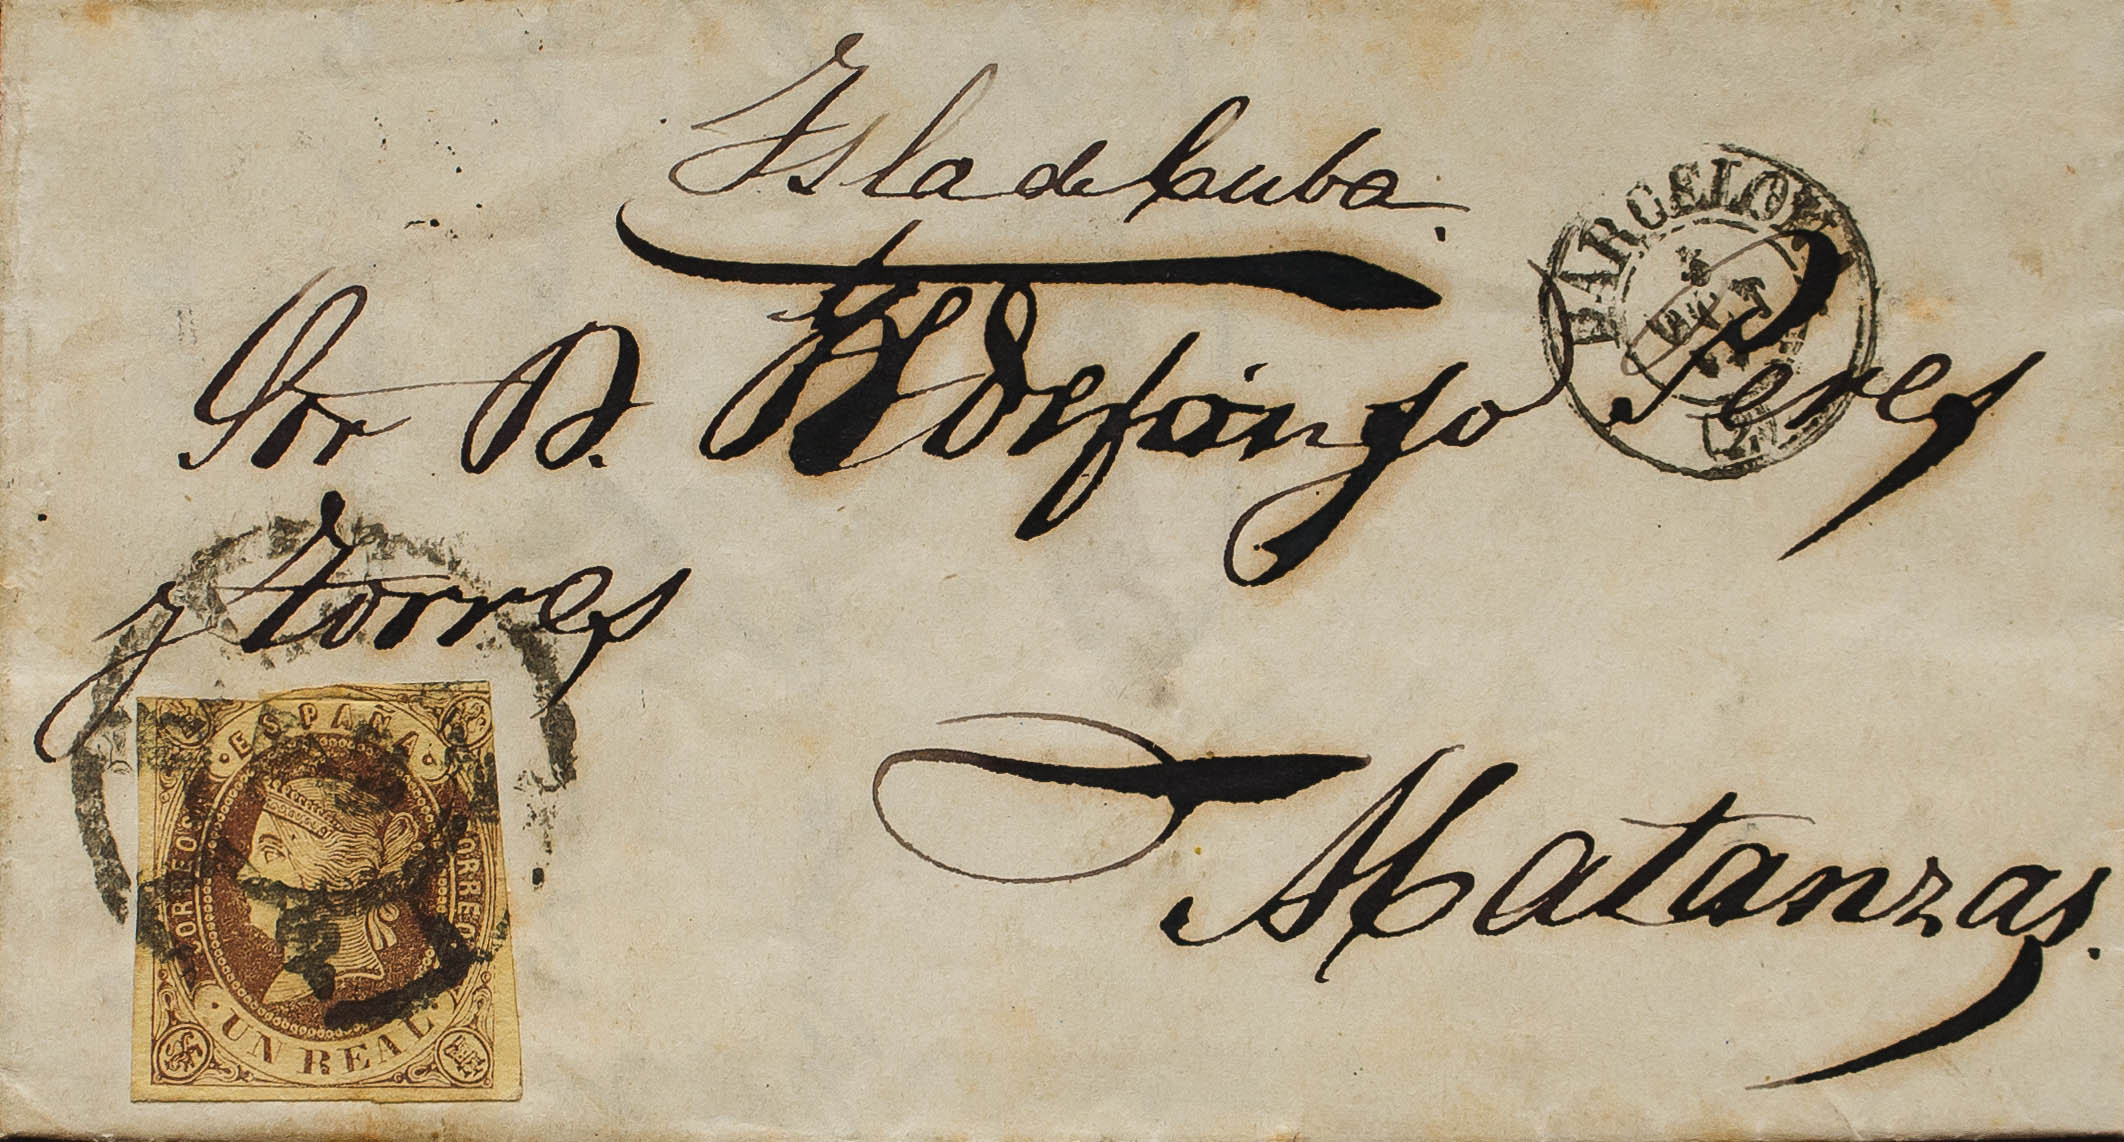 Isla de Cuba.
Sor D. Ildefonso Peres
y Torres
Matanzas.
BARCELONA
5
OCT
(2)
ESPAÑA
CORREOS
CORREOS
UN REAL